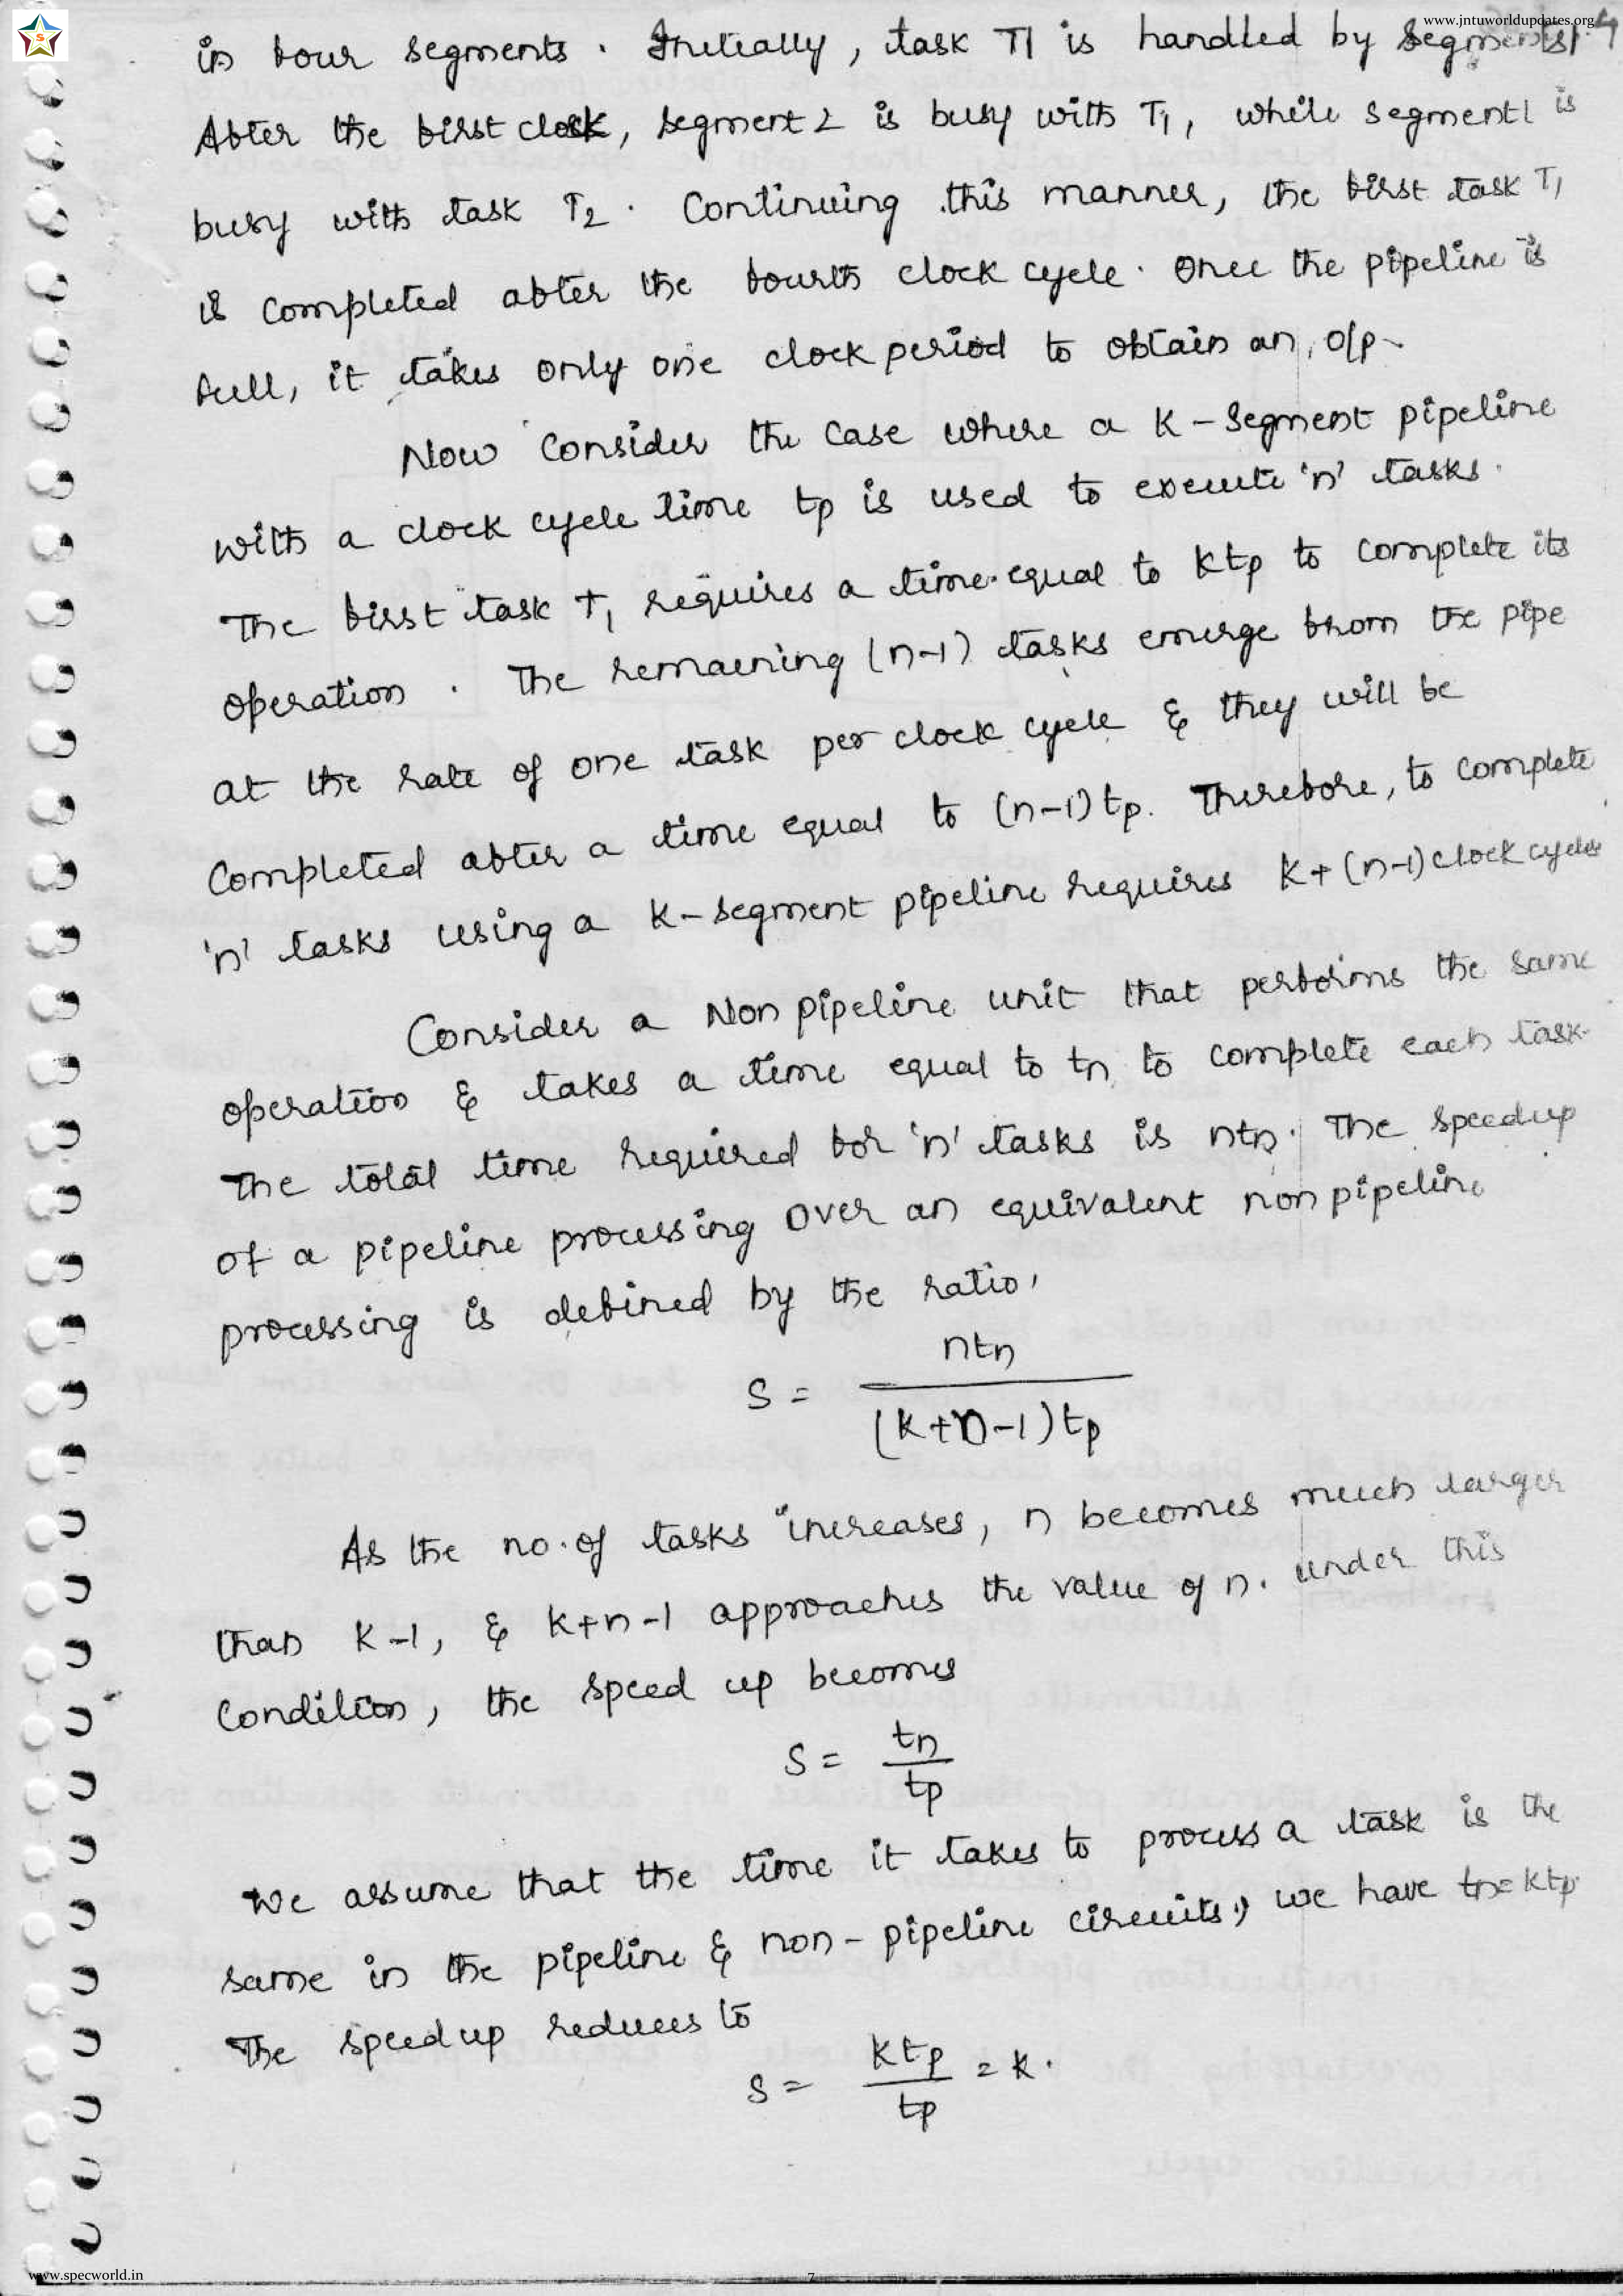 www.jntuworldupdates.org
in four segments. Initially, task T1 is handled by segment 1.
After the first clock, segment 2 is busy with T1, while segment 1 is
busy with task T2. Continuing this manner, the first task T1
is completed after the fourth clock cycle. Once the pipeline is
full, it takes only one clock period to obtain an o/p.
Now consider the case where a K-segment pipeline
with a clock cycle time tp is used to execute 'n' tasks.
The first task T1 requires a time equal to Ktp to complete its
operation. The remaining (n-1) tasks emerge from the pipe
at the rate of one task per clock cycle & they will be
completed after a time equal to (n-1)tp. Therefore, to complete
'n' tasks using a K-segment pipeline requires K+(n-1) clock cycles
Consider a Non pipeline unit that performs the same
operation & takes a time equal to tn to complete each task.
The total time required for 'n' tasks is ntn. The speedup
of a pipeline processing over an equivalent non pipeline
processing is defined by the ratio,
S = ntn / (K+n-1)tp
As the no. of tasks increases, n becomes much larger
than K-1, & K+n-1 approaches the value of n. under this
condition, the speed up becomes
S = tn / tp
We assume that the time it takes to process a task is the
same in the pipeline & non-pipeline circuits, we have tn=Ktp.
The speedup reduces to
S = Ktp / tp = K.
www.specworld.in
7